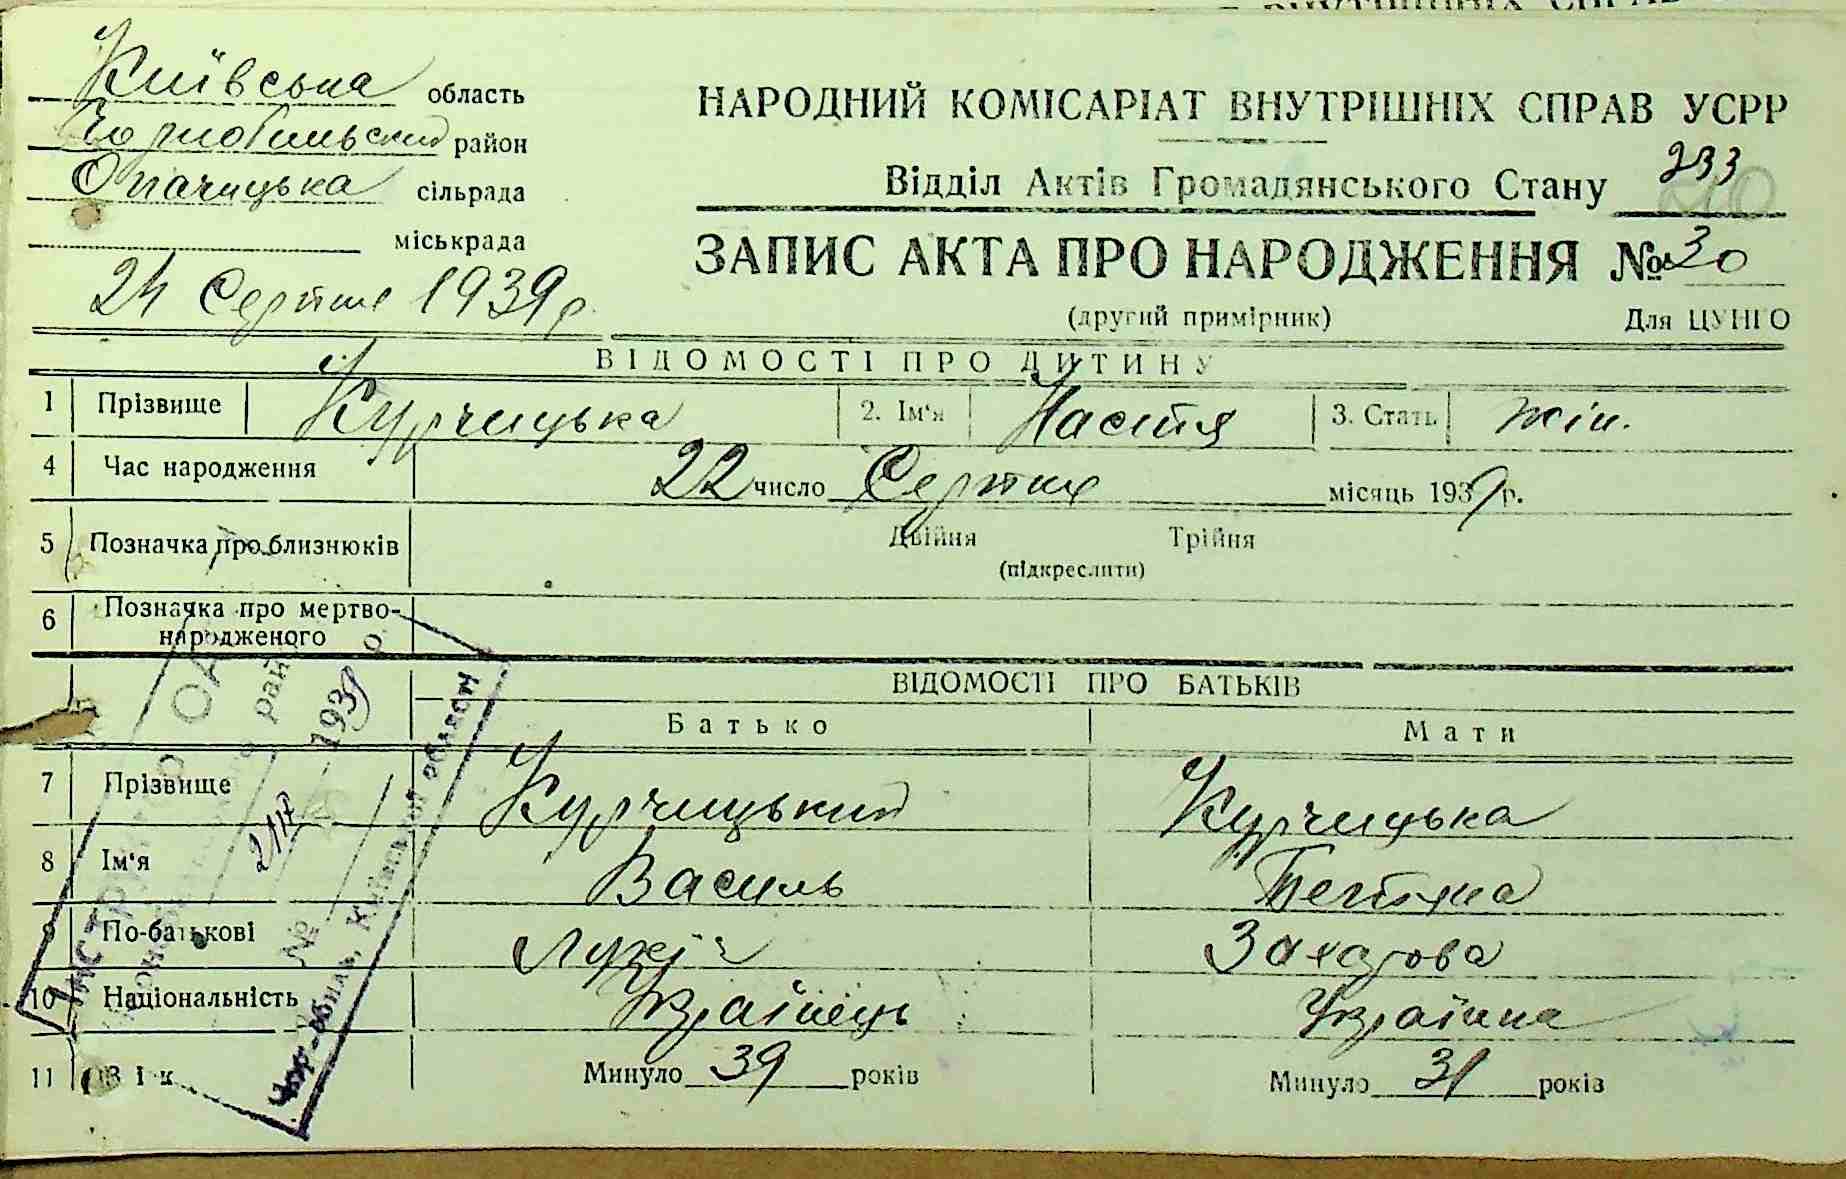 Київська область
Чорнобильський район
Опачицька сільрада
міськрада
24 Серпня 1939 р.
НАРОДНИЙ КОМІСАРІАТ ВНУТРІШНІХ СПРАВ УСРР
Відділ Актів Громадянського Стану 233
ЗАПИС АКТА ПРО НАРОДЖЕННЯ № 30
(другий примірник) Для ЦУНГО
ВІДОМОСТІ ПРО ДИТИНУ
1 Прізвище Курчицька 2. Ім'я Настя 3. Стать жін.
4 Час народження 22 число Серпня місяць 1939 р.
5 Позначка про близнюків Двійня Трійня
(підкреслити)
6 Позначка про мертво-
народженого
ВІДОМОСТІ ПРО БАТЬКІВ
Батько Мати
7 Прізвище Курчицький Курчицька
8 Ім'я Василь Тетяна
9 По-батькові Лукіч Захарова
10 Національність Українець Українка
11 Вік Минуло 39 років Минуло 31 років
1939 р.
№
Київської області